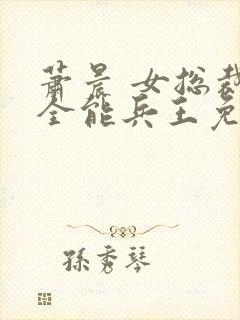 萧晨 女总裁
全能兵王免
孫秀琴